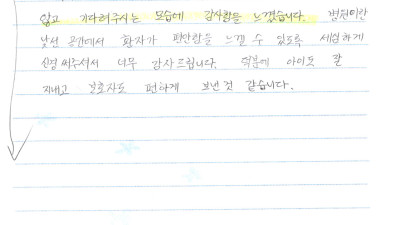 않고 기다려주시는 모습에 감사함을 느꼈습니다. 병원이란
낯선 공간에서 환자가 편안함을 느낄 수 있도록 세심하게
신경써주셔서 너무 감사드립니다. 덕분에 아이도 잘
지내고 보호자도 편하게 보낸것 같습니다.